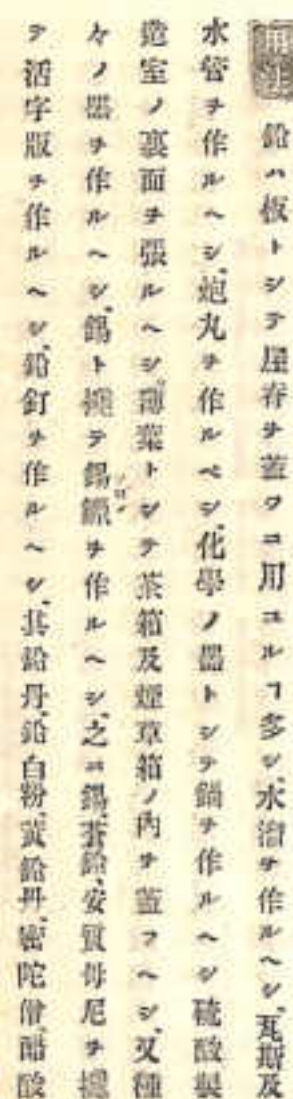 用法 鉛ハ板トシテ屋脊ヲ蓋フニ用ユルヿ多シ、水溜ヲ作ルヘシ、瓦斯及
水管ヲ作ルヘシ、炮丸ヲ作ルベシ、化學ノ器トシテ鍋ヲ作ルヘシ硫酸製
造室ノ裏面ヲ張ルヘシ、薄葉トシテ茶箱及煙草箱ノ内ヲ蓋フヘシ、又種
々ノ器ヲ作ルヘシ、錫ト攙テ錫鑞ヲ作ルヘシ、之ニ錫、蒼鉛、安質母尼ヲ攙
テ活字版ヲ作ルヘシ、鉛釘ヲ作ルヘシ、其鉛丹、鉛白粉、黄鉛丹、密陀僧、醋酸